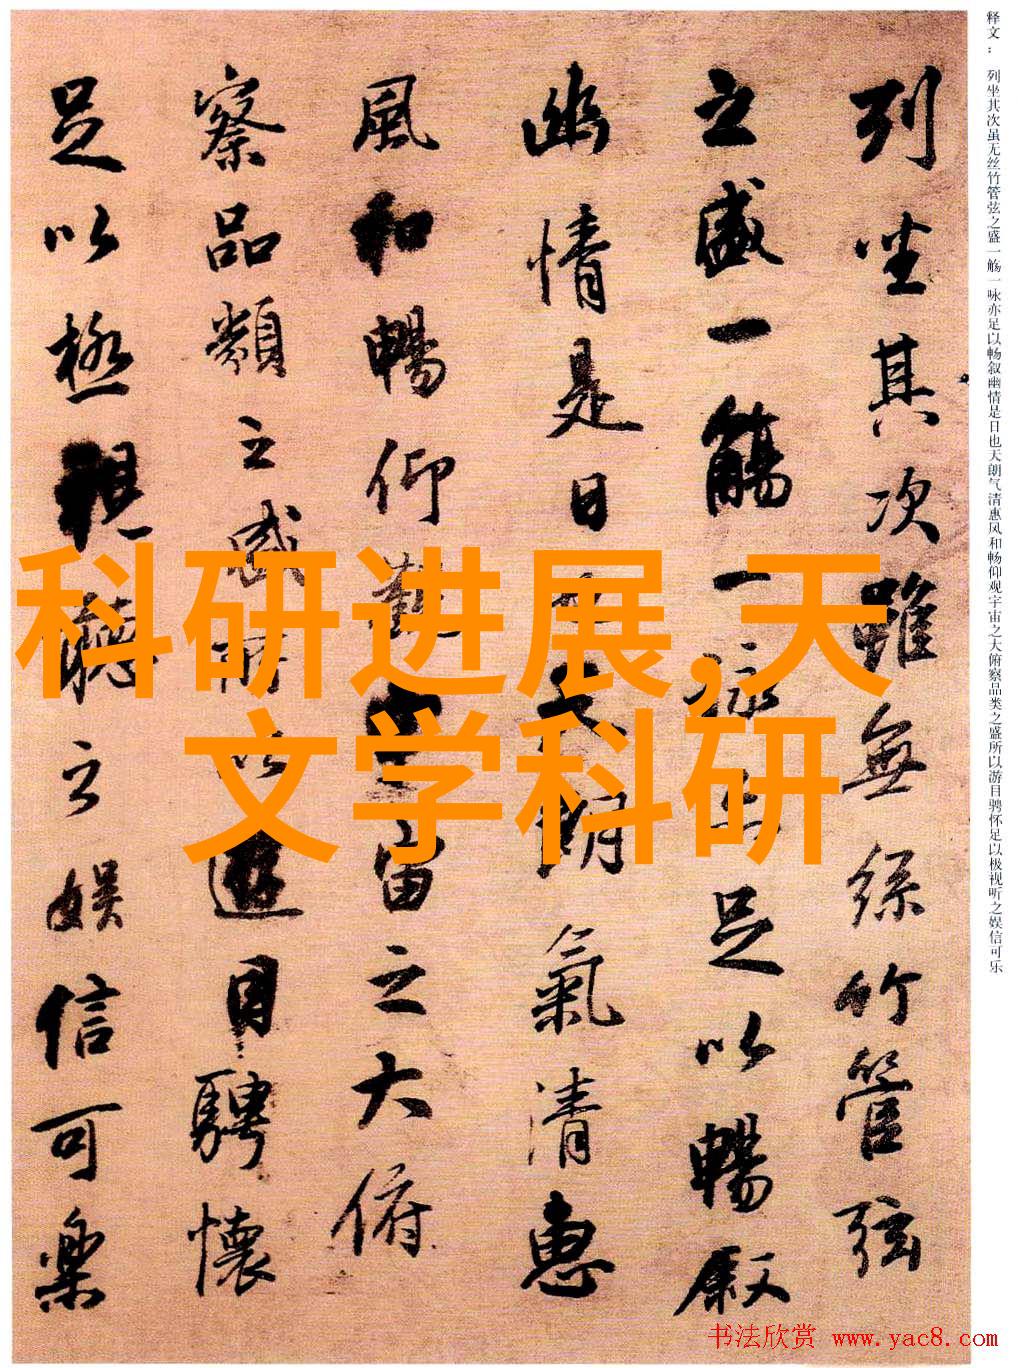 释文： 列坐其次虽无丝竹管弦之盛一觞一咏亦足以畅叙幽情是日也天朗气清惠风和畅仰观宇宙之大俯察品类之盛所以游目骋怀足以极视听之娱信可乐
列坐其次雖無絲竹管弦
之盛一觴一詠亦足以暢叙
幽情是日也天朗氣清惠
風和暢仰觀宇宙之大俯
察品類之盛所以遊目騁懷
足以極視聽之娛信可樂
科研进展,天
文学科研
书法欣赏 www.yac8.com